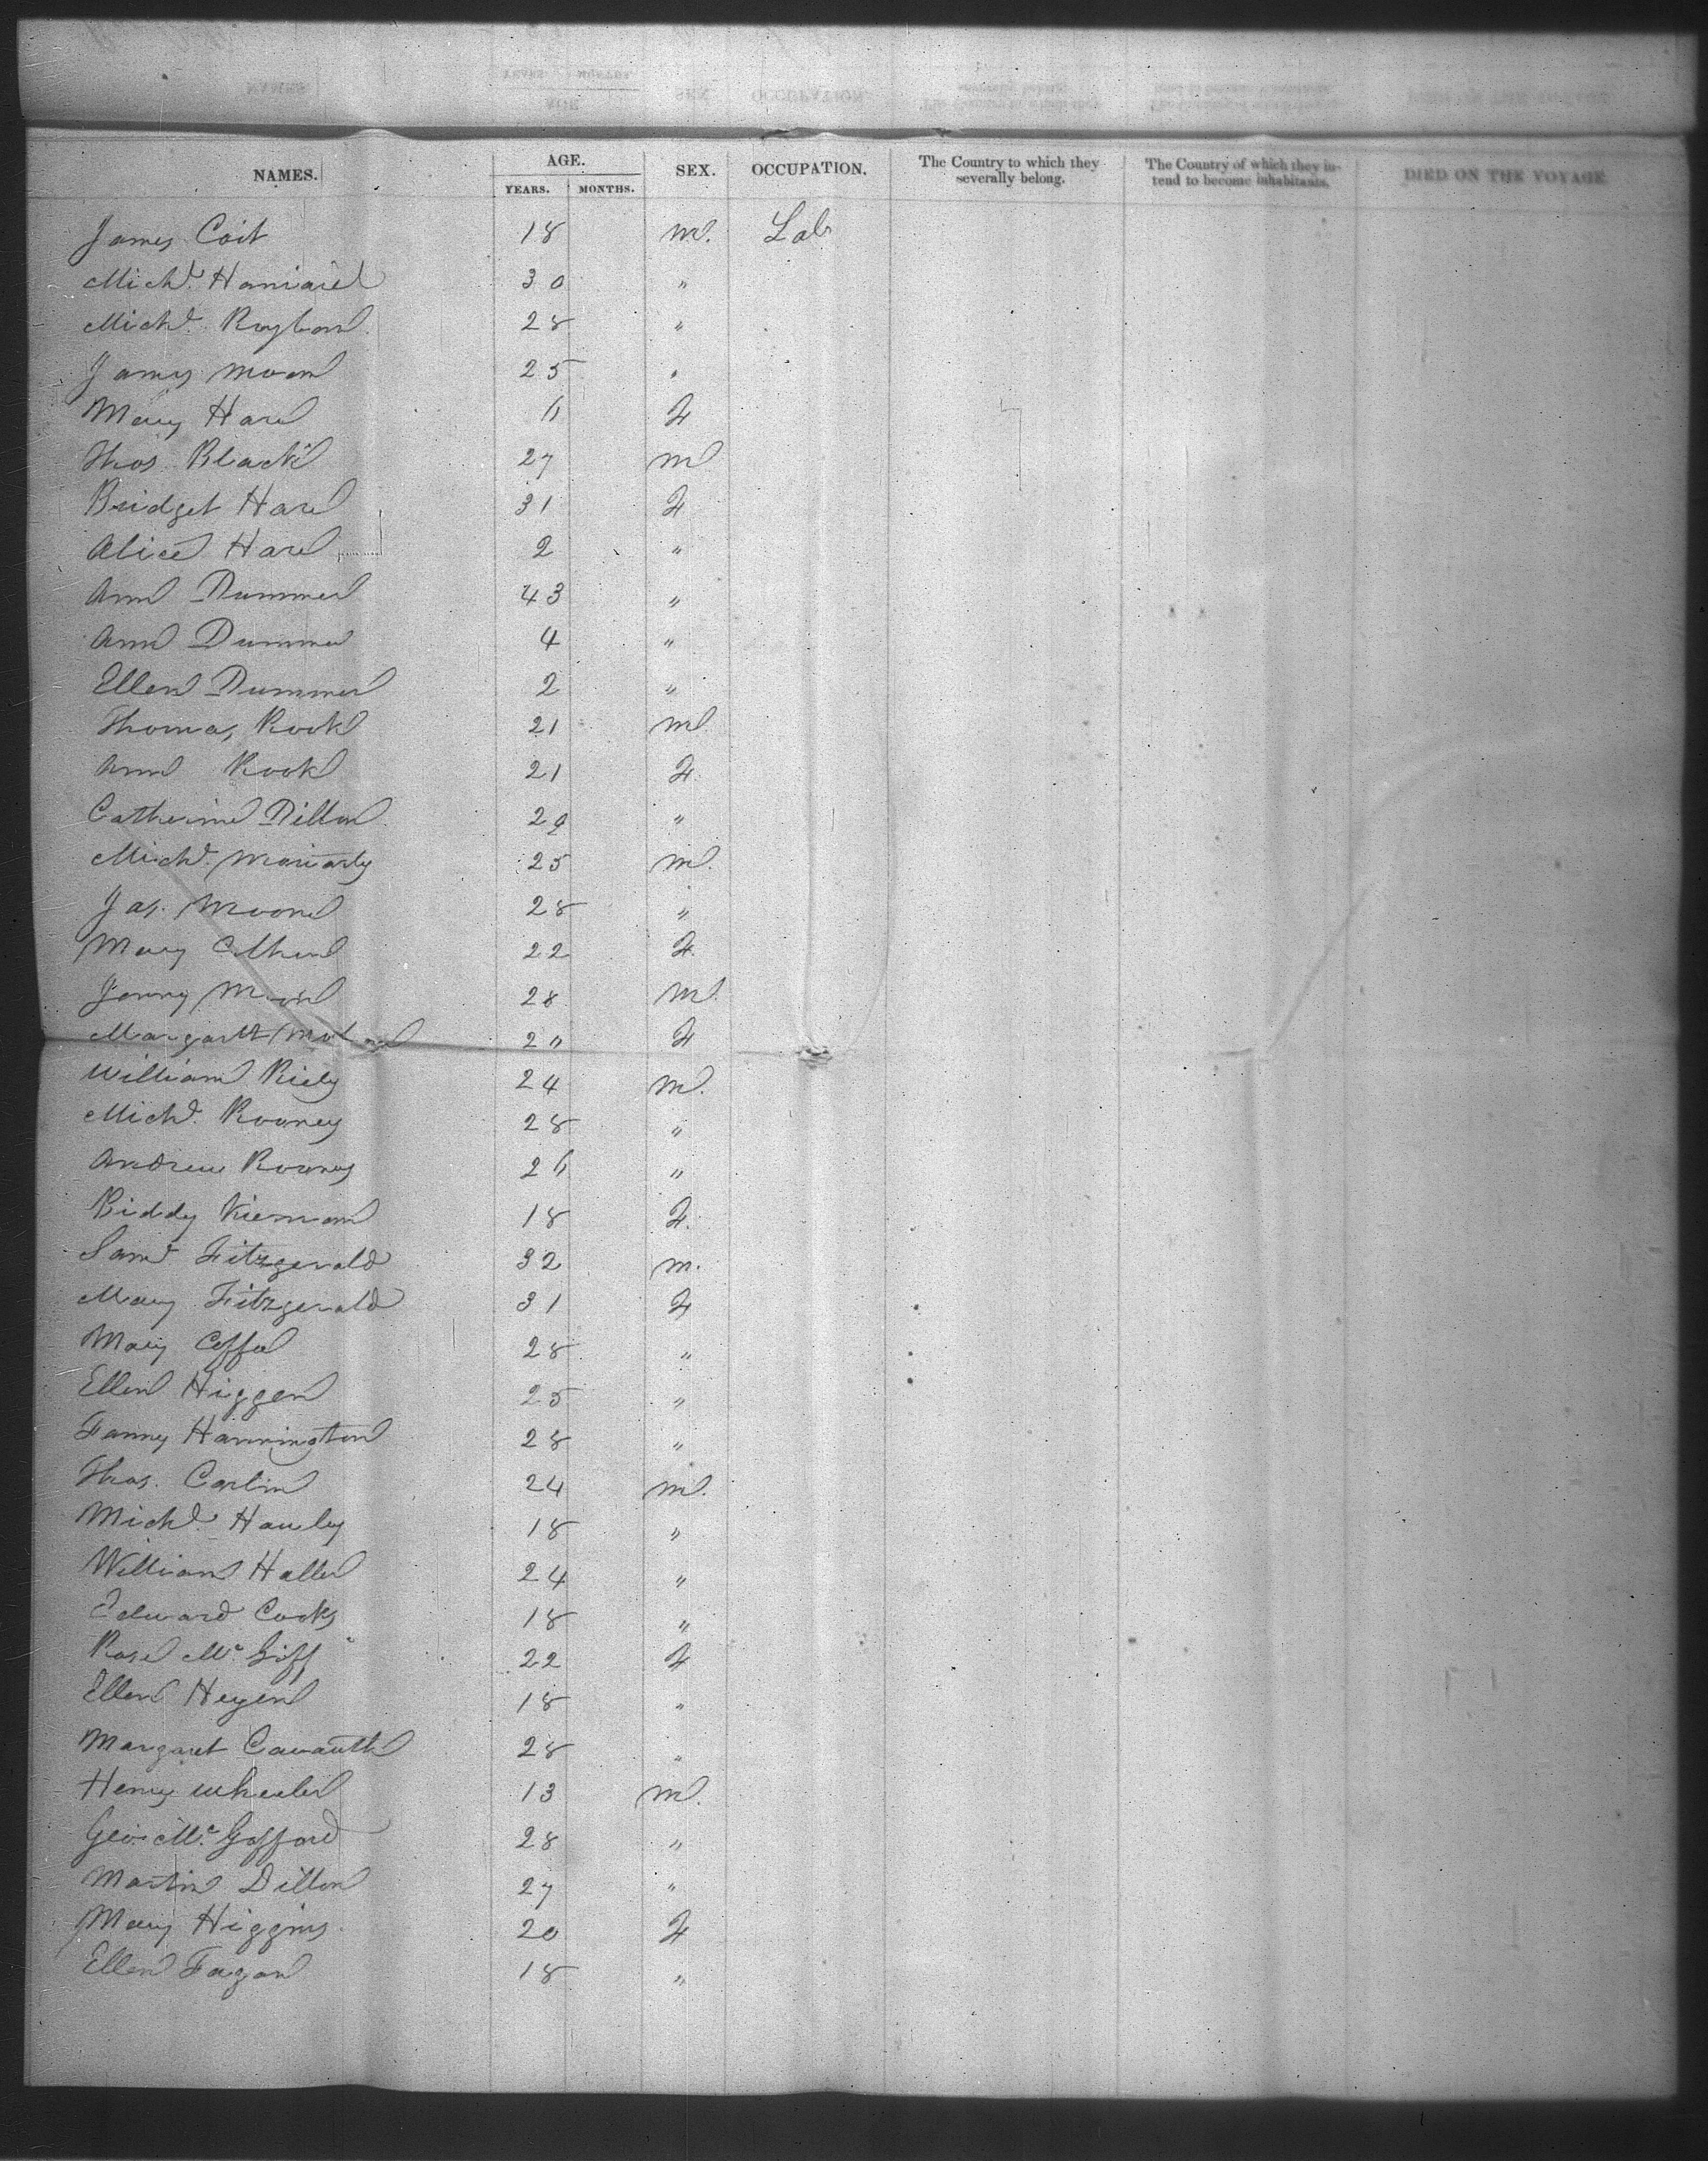 NAMES. AGE. SEX. OCCUPATION. The Country to which they severally belong. The Country of which they intend to become inhabitants. DIED ON THE VOYAGE
YEARS. MONTHS.
James Coit 18 m. Lab
Michl. 30 "
Michl. 28 "
James Moon 25 "
Mary Hare 6 F
Thos. Black 27 m
Bridget Hare 31 F
Alice Hare 2 "
Ann Dummer 43 "
Ann Dummer 4 "
Ellen Dummer 2 "
Thomas Rook 21 m
Ann Rook 21 F
Catherine Dillon 29 "
Michl. Moriarty 25 m.
Jas. Moore 28 "
Mary 22 F
28 m
Margartt 20 F
William Riely 24 m.
Michl. Rooney 28 "
Andrew Rooney 26 "
Biddy Kiernan 18 F.
Saml Fitzgerald 32 m.
Mary Fitzgerald 31 F
Mary Coffee 28 "
Ellen Higgen 25 "
Fanny Hannington 28 "
Thos. Carlin 24 m.
Michl. Hauley 18 "
William Haller 24 "
Edward Cooks 18 "
Rose Mc Giff 22 F
Ellen Heyen 18 "
Margaret Cavauth 28 "
Henry Wheeler 13 m.
Geo. Mc. Gafford 28 "
Martin Dillon 27 "
Mary Higgins 20 F
Ellen Fagan 18 "